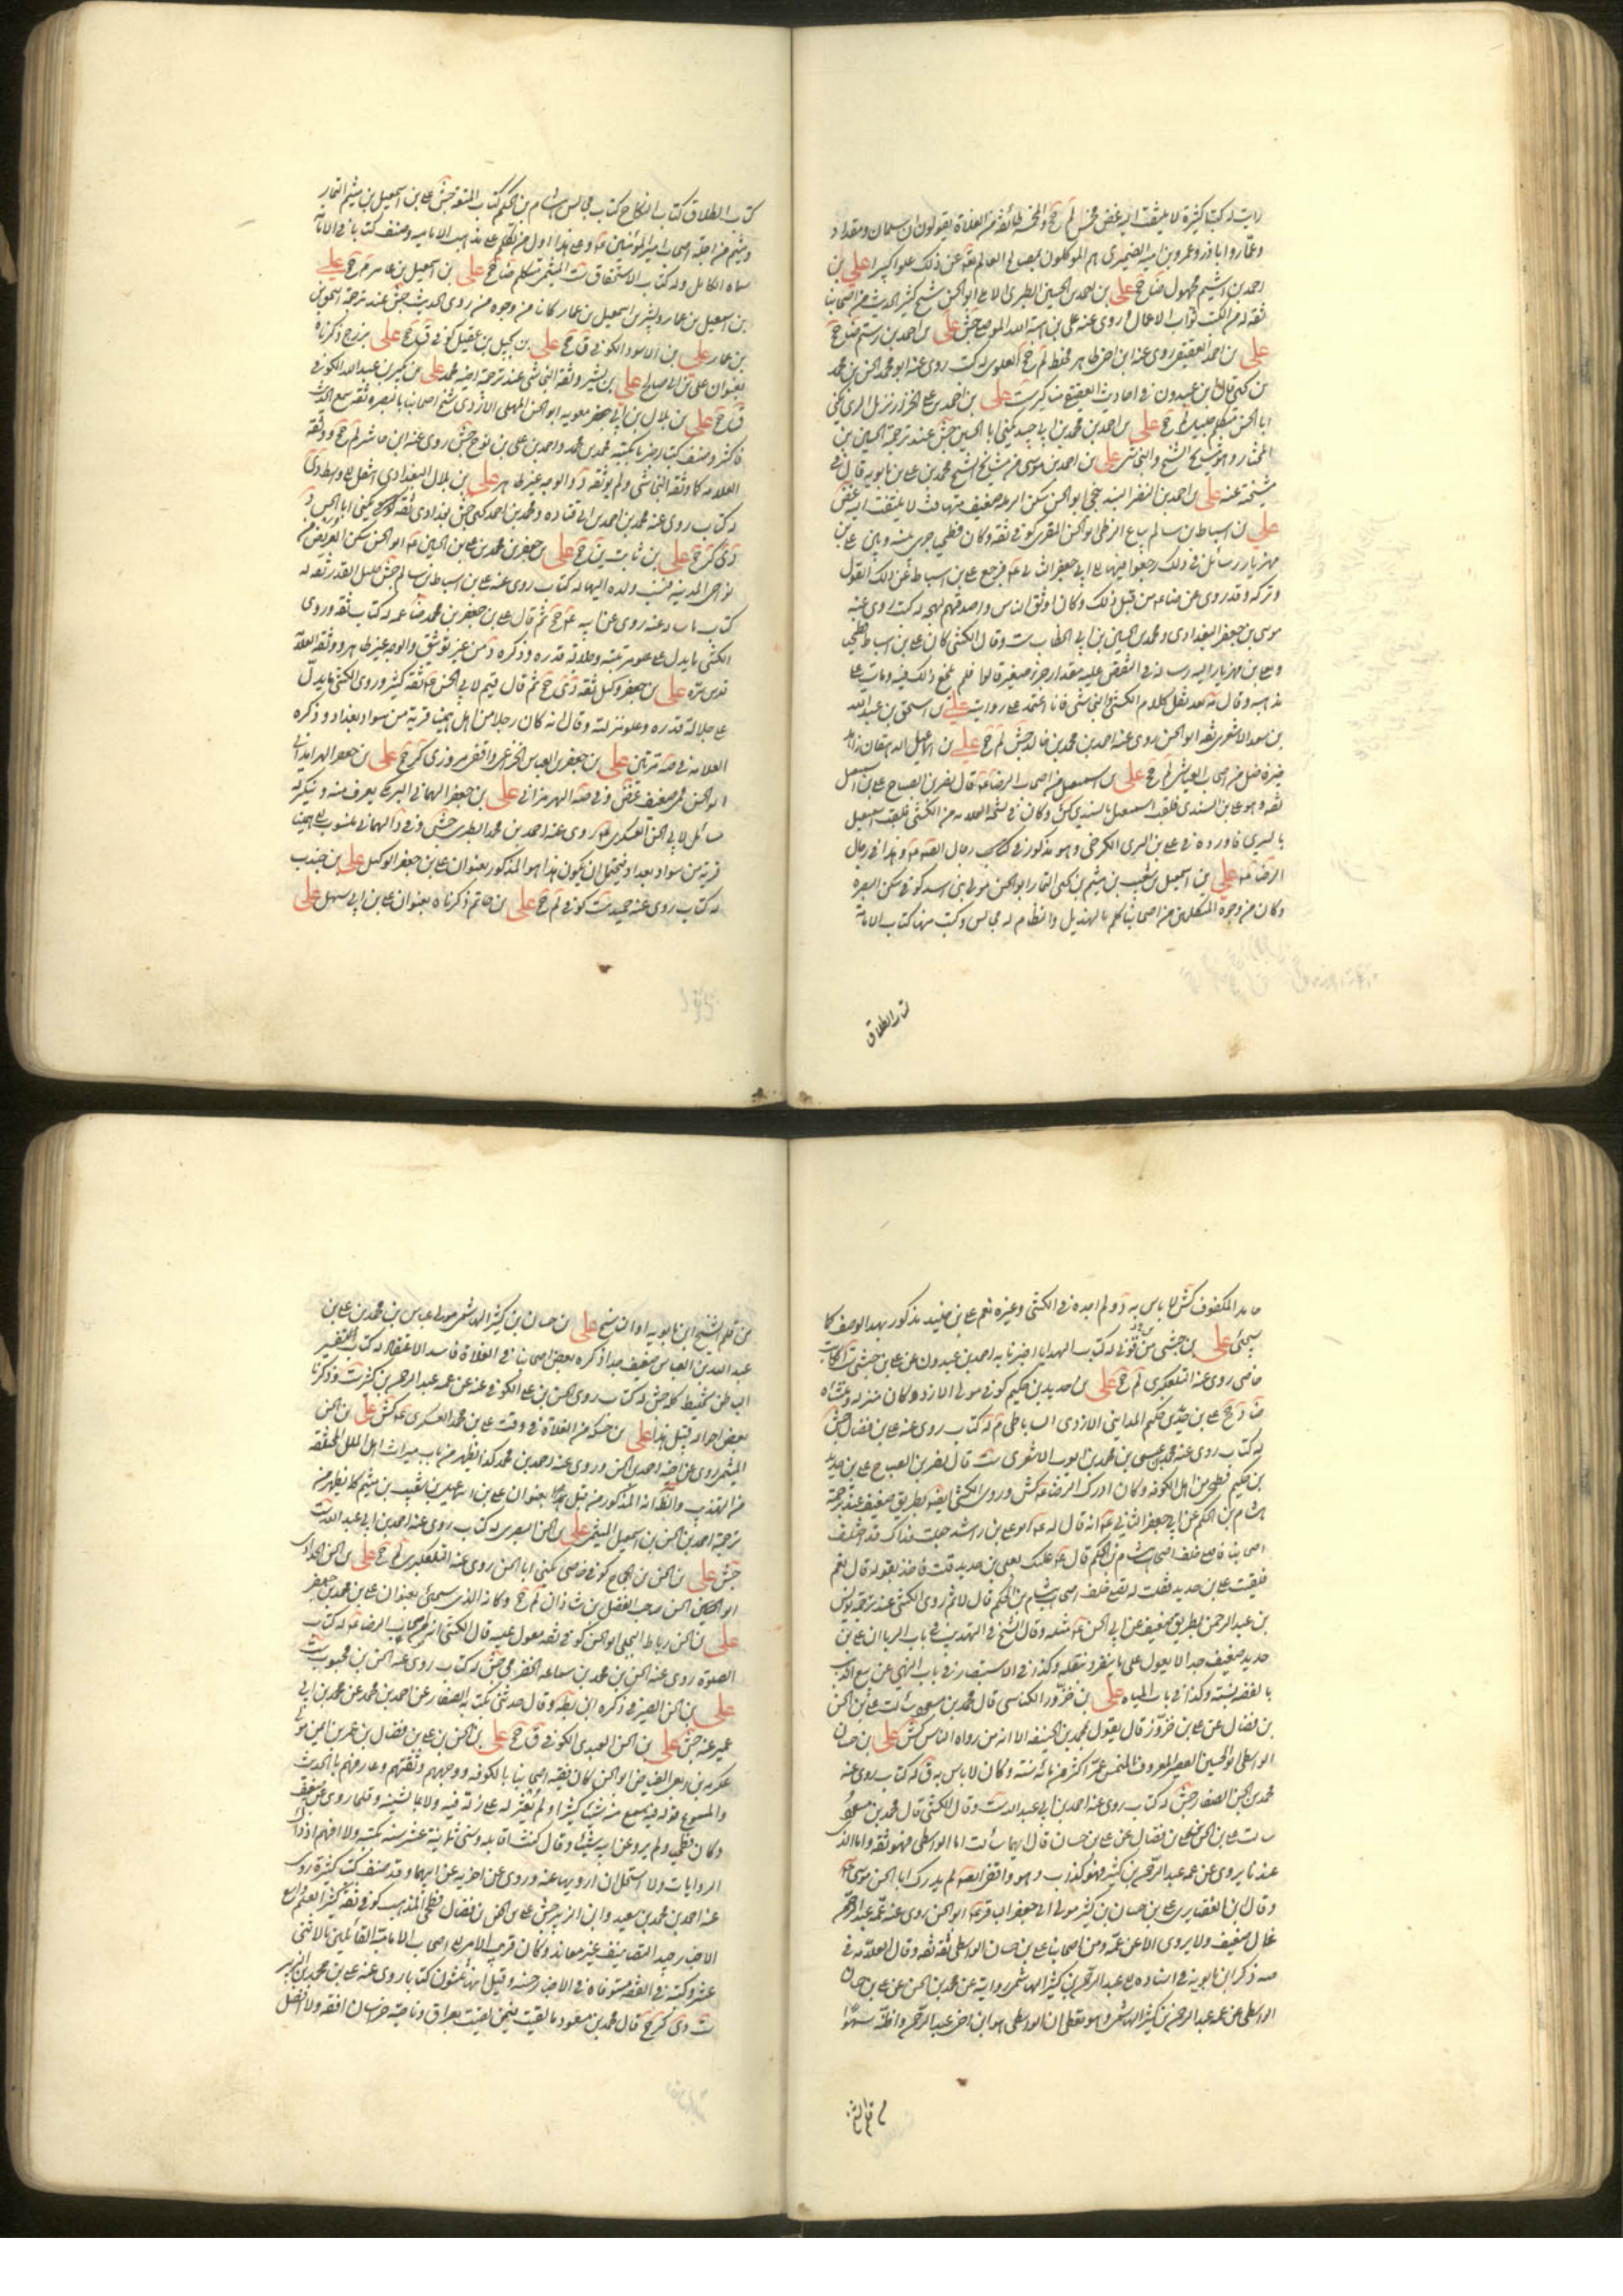 رايت له كتبا كثيرة لا يلتفت اليه غض مخمس لم جخ والمخمسة طائفة من الغلاة يقولون ان سلمان ومقداد
وعمار واباذر وعمرو بن امية الضميرى هم الموكلون بمصالح العالم تعالى عن ذلك علوا كبيرا علي بن
احمد بن اشيم مجهول ضا جخ علي بن احمد بن الحسين الطبرى الاملى ابو الحسن شيخ كثير الحديث من اصحابنا
ثقة له من الكتب ثواب الاعمال روى عنه على بن هبة الله الموصلى جش علي بن احمد بن رستم ضا جخ
علي بن احمد العقيقى روى عنه ابن اخى طاهر مخلط لم جخ العلوى له كتب روى عنه ابو محمد الحسن بن محمد
بن يحيى قال ابن عبدون فى احاديث العقيقى مناكير ست علي بن احمد بن على الخزاز نزيل الرى يكنى
ابا الحسن متكلم جليل لم جخ علي بن احمد بن محمد بن ابى جيد يكنى ابا الحسين جش عند ترجمة الحسين بن
المختار وهو شيخ الشيخ والنجاشى علي بن احمد بن موسى من مشايخ الشيخ محمد بن على بن بابويه قال فى
علي بن اسباط بن سالم بياع الزطى ابو الحسن المقرى كوفى ثقة وكان فطحيا جرى بينه وبين على بن
مهزيار رسائل فى ذلك رجعوا فيها الى ابى جعفر الثانى ع فرجع على بن اسباط عن ذلك القول
وتركه وقد روى عن الرضا ع من قبل ذلك وكان اوثق الناس واصدقهم لهجة له كتب روى عنه
موسى بن جعفر البغدادى ومحمد بن الحسين بن ابى الخطاب ست وقال الكشى كان على بن اسباط فطحى
ولعلى بن مهزيار اليه رسالة فى النقض عليه مقدار جزء صغير قالوا فلم ينجع ذلك فيه ومات على
مذهبه وقال صه بعد نقل كلام الكشى والنجاشى فانا اعتمد على روايته علي بن اسحق بن عبد الله
بن سعد الاشعرى ثقة ابو الحسن روى عنه احمد بن محمد بن خالد جش لم جخ علي بن اسمعيل الدهقان زاهد
خير فاضل من اصحاب العياشى لم جخ علي بن اسمعيل من اصحاب الرضا ع قال نصر بن الصباح على بن اسمعيل
ثقة وهو على بن السندى فلقب اسمعيل بالسندى كش وكان فى نسخة العلامة من الكشى فلقب اسمعيل
بالسرى فاورده فى على بن السرى الكرخى وهو مذكور فى كتب رجال الصادق ع وهذا فى رجال
الرضا ع علي بن اسمعيل بن شعيب بن ميثم بن يحيى التمار ابو الحسن مولى بنى اسد كوفى سكن البصرة
وكان من وجوه المتكلمين من اصحابنا كلم ابا الهذيل والنظام له مجالس وكتب منها كتاب الامامة
كتاب الطلاق
كتاب الطلاق كتاب النكاح كتاب مجالس هشام بن الحكم كتاب المتعة جش على بن اسمعيل بن ميثم التمار
وميثم من اجلة اصحاب امير المؤمنين ع وعلى هذا اول من تكلم على مذهب الامامية وصنف كتابا فى الامامة
سماه الكامل وله كتاب الاستحقاق ست الميثمى متكلم ضا جخ علي بن اسمعيل بن عامر م جخ علي
بن اسمعيل بن عمار وبشر بن اسمعيل بن عمار كانا من وجوه من روى الحديث جش عند ترجمة اسحق بن
بن عمار علي بن الاسود الكوفى ق جخ علي بن بجيل بن عقيل كوفى ق جخ علي بزرج ذكرناه
بعنوان على بن ابى صالح علي بن بشير وثقه النجاشى عند ترجمة اخيه محمد علي بن بكير بن عبد الله الكوفى
ق جخ علي بن بلال بن ابى معوية ابو الحسن المهلبى الازدى شيخ اصحابنا بالبصرة ثقة سمع الحديث
فاكثر وصنف كتبا اخبرنا بكتبه محمد بن محمد واحمد بن على بن نوح جش روى عنه ابن حاشر لم جخ ووثقه
العلامة كما وثقه النجاشى ولم يوثقه د والوجه غير ظاهر علي بن بلال البغدادى انتقل الى واسط د دى
له كتاب روى عنه محمد بن احمد بن ابى قتادة ومحمد بن احمد بن يحيى جش بغدادى ثقة كر يكنى ابا الحسن د
دى كر جخ علي بن ثابت ين جخ علي بن جعفر بن محمد بن على بن الحسين ع ابو الحسن سكن العريض من
نواحى المدينة فنسب ولده اليها له كتاب روى عنه على بن اسباط بن سالم جش جليل القدر ثقة له
كتاب ما ساله عنه روى عن ابيه ع جخ ثم قال على بن جعفر بن محمد ضا عمه له كتاب ثقة وروى
الكشى ما يدل على علو مرتبته وجلالة قدره وذكره د من غير توثيق والوجه غير ظاهر ووثقه العلامة
قدس سره علي بن جعفر وكيل ثقة دى جخ ثم قال قيم لابى الحسن ع ثقة كر وروى الكشى ما يدل
على جلالة قدره وعلو منزلته وقال انه كان رجلا من اهل همينيا قرية من سواد بغداد وذكره
العلامة فى صه مرتين علي بن جعفر بن العباس الخزاعى واقفى مروزى كر جخ علي بن جعفر الهرمزانى
ابو الحسن قمى ضعيف غض وفى صه الهرمزانى علي بن جعفر الهمانى البرمكى يعرف منه وينكر له
مسائل لابى الحسن العسكرى ع روى عنه احمد بن محمد الطبرى جش وفى د الهمانى منسوب الى همينيا
قرية من سواد بغداد فيحتمل ان يكون هذا هو المذكور بعنوان على بن جعفر الوكيل علي بن جندب
له كتاب روى عنه حميد ست كوفى لم جخ علي بن حاتم ذكرناه بعنوان على بن ابى سهل علي
حامد المكفوف كش لا باس به د ولم اجده فى الكشى وغيره نعم على بن خليد مذكور بهذا الوصف كما
سيجئ علي بن حبشى بن قونى له كتاب الهدايا اخبرنا به احمد بن عبدون عن على بن حبشى ست الكاتب
خاصى روى عنه التلعكبرى لم جخ علي بن حديد بن حكيم كوفى مولى الازد وكان منزله ومنشاه
ضا د جخ على بن حديد بن حكيم المدائنى الازدى الساباطى م له كتاب روى عنه على بن فضال جش
له كتاب روى عنه محمد بن عيسى بن محمد بن ايوب الاشعرى ست قال نصر بن الصباح على بن حديد
بن حكيم فطحى من اهل الكوفة وكان ادرك الرضا ع كش وروى الكشى ايضا بطريق ضعيف عند ترجمة
هشام بن الحكم عن ابى جعفر الثانى ع انه قال له ابو على بن راشد جعلت فداك قد اختلف
اصحابنا فاصلى خلف اصحاب هشام بن الحكم قال ع عليك بعلى بن حديد قلت فاخذ بقوله قال نعم
فلقيت على بن حديد فقلت له نصلى خلف اصحاب هشام بن الحكم قال لا ثم روى الكشى عند ترجمة يونس
بن عبد الرحمن بطريق ضعيف عن ابى الحسن ع مثله وقال الشيخ فى التهذيب فى باب الربا ان على بن
حديد ضعيف جدا لا يعول على ما ينفرد بنقله وكذا فى الاستبصار فى باب النهى عن بيع الذهب
بالفضة نسيئة وكذا فى باب المياه علي بن حزور الكناسى قال محمد بن مسعود سالت على بن الحسن
بن فضال عن على بن حزور قال يقول بمحمد بن الحنفية الا انه من رواة الناس كش علي بن حسان
الواسطى ابو الحسين القصير المعروف بالمنمس عمر اكثر من مائة سنة وكان لا باس به ق له كتاب روى عنه
محمد بن الحسن الصفار جش له كتاب روى عنه احمد بن ابى عبد الله ست وقال الكشى قال محمد بن مسعود
سالت على بن الحسن بن على بن فضال عن على بن حسان قال ايهما سالت اما الواسطى فهو ثقة واما الذى
عندنا يروى عن عمه عبد الرحمن بن كثير فهو كذاب وهو واقفى ايضا لم يدرك ابا الحسن موسى ع
وقال ابن الغضايرى على بن حسان بن كثير مولى ابى جعفر الباقر ع ابو الحسن روى عن عمه عبد الرحمن
غال ضعيف ولا يروى الا عن عمه ومن اصحابنا على بن حسان الواسطى ثقة ثقة وقال العلامة فى
صه ذكر ابن بابويه فى اسناده الى عبد الرحمن بن كثير الهاشمى رواية عن محمد بن الحسن عن على بن حسان
الواسطى عن عمه عبد الرحمن بن كثير الهاشمى وهو يعطى ان الواسطى هو ابن اخى عبد الرحمن واظنه سهوا
من قلم الشيخ
من قلم الشيخ ابن بابويه او الناسخ علي بن حسان بن كثير الهاشمى مولى عباس بن محمد بن على بن
عبد الله بن العباس ضعيف جدا ذكره بعض اصحابنا فى الغلاة فاسد الاعتقاد له كتاب تفسير
الباطن تخليط كله جش له كتاب روى الحسن بن على الكوفى عنه عن عمه عبد الرحمن بن كثير ست وذكرنا
بعض احواله قبيل هذا علي بن حسكة من الغلاة فى وقت على بن محمد العسكرى ع كش علي بن الحسن
الميثمى روى عن اخيه احمد بن الحسن وروى عنه احمد بن محمد كذا يظهر من باب ميراث اهل الملل المختلفة
من التهذيب والظاهر انه المذكور من قبل بعنوان على بن اسمعيل بن شعيب بن ميثم كما يظهر من
ترجمة احمد بن الحسن بن اسمعيل الميثمى علي بن الحسن البصرى له كتاب روى عنه احمد بن ابى عبد الله ست
جش علي بن الحسن بن الحجاج كوفى خاصى يكنى ابا الحسن روى عنه التلعكبرى لم جخ علي بن الحسن الحداد
علي بن الحسن رباط البجلى ابو الحسن كوفى ثقة معول عليه قال الكشى انه من اصحاب الرضا ع له كتاب
الصلوة روى عنه الحسن بن محمد بن سماعة الحضرمى جش له كتاب روى عنه الحسن بن محبوب ست
علي بن الحسن الصيرفى ذكره ابن بطة وقال حدثنى بكتبه الصفار عن احمد بن محمد عن محمد بن ابى
عمير عنه جش علي بن الحسن العبدى الكوفى ق جخ علي بن الحسن بن على بن فضال بن عمر بن ايمن مولى
عكرمة بن ربعى الفياض ابو الحسن كان فقيه اصحابنا بالكوفة ووجههم وثقتهم وعارفهم بالحديث
والمسموع قوله فيه سمع منه شيئا كثيرا ولم يعثر له على زلة فيه ولا ما يشينه وقلما روى عن ضعيف
وكان فطحيا ولم يرو عن ابيه شيئا وقال كنت اقابله وسنى ثمانية عشر سنة بكتبه ولا افهم اذ ذاك
الروايات ولا استحل ان ارويها عنه وروى عن اخويه عن ابيهما وقد صنف كتبا كثيرة روى
عنه احمد بن محمد بن سعيد وابن الزبير جش على بن الحسن بن فضال فطحى المذهب كوفى ثقة كثير العلم واسع
الاخبار جيد التصانيف غير معاند وكان قريب الامر الى اصحابنا الامامية القائلين بالاثنى
عشر وكتبه فى الفقه مستوفاة فى الاخبار حسنة وقيل انها ثلثون كتابا روى عنه على بن محمد بن الزبير
ست دى كر جخ قال محمد بن مسعود ما لقيت فيمن لقيت بعراق وناحية خراسان افقه ولا افضل